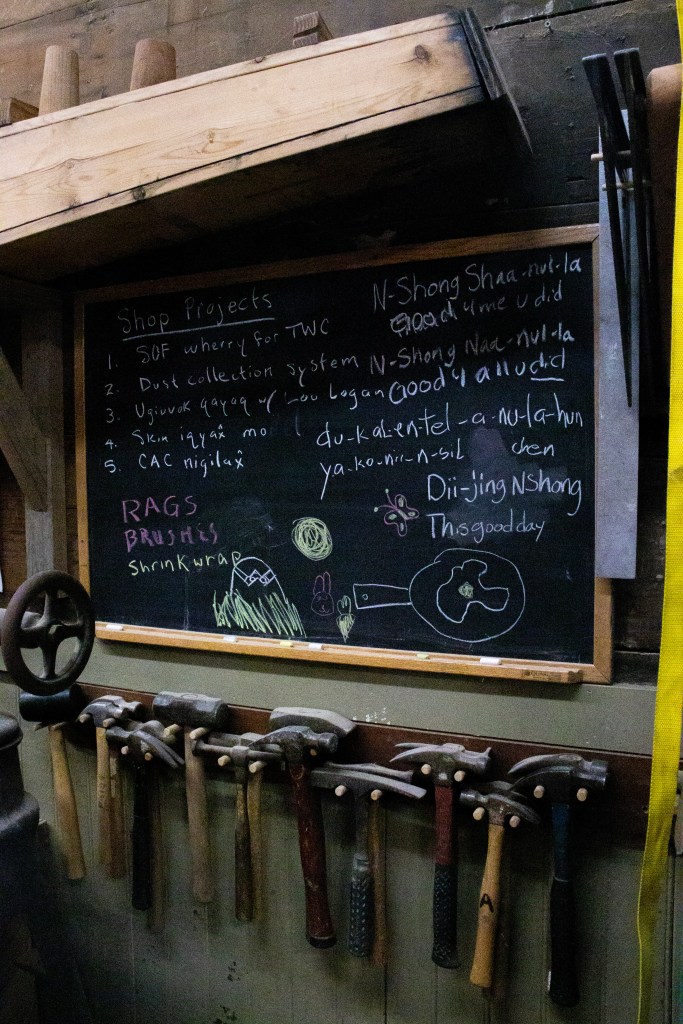 Shop Projects
1. SOF wherry for TWC
2. Dust collection system
3. Ugiuvok qayaq w/ Lou Logan
4. Skin iqyax̂
5. CAC nigilax̂
RAGS
BRUSHES
Shrinkwrap
N-Shong Shaa-nul-la
Good 4 me u did
N-Shong Naa-nul-la
Good 4 all u did
du-kal-en-tel-a-nu-la-hun
chen
Dii-jing NShong
This good day
A